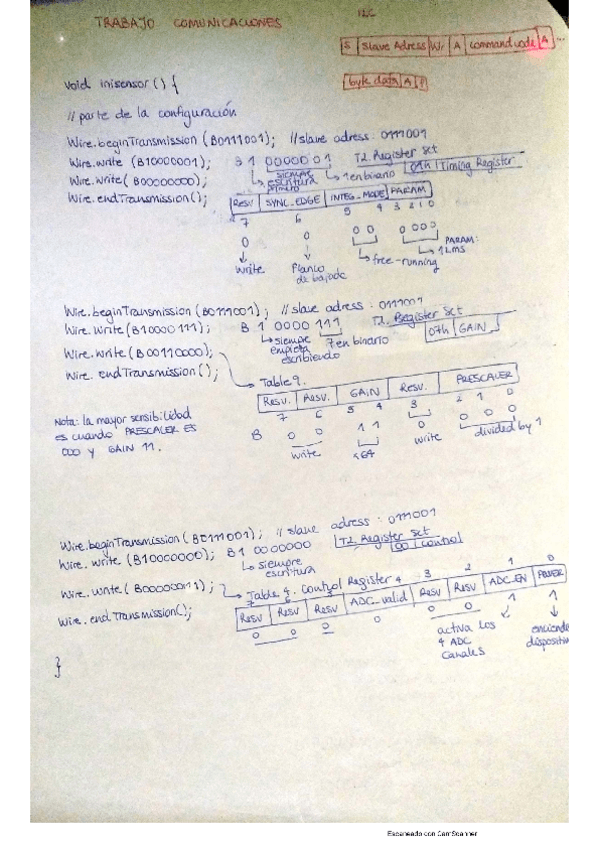 TRABAJO COMUNICACIONES
I2C
S | Slave Adress | Wr | A | Command code | A | ...
byte data | A | P
void inisensor() {
// parte de la configuración
Wire.beginTransmission (B0111001); // slave adress : 0111001
Wire.write (B10000001); B 1 0000001 T2. Register Set
siempre escritura primero
1 en binario
01h | Timing Register
Wire.write (B00000000);
Wire.endTransmission();
Resv | SYNC_EDGE | INTEG_MODE | PARAM
7 6 5 4 3 2 1 0
0 0 0 0 0 0 0 0
write
Flanco de bajada
free-running
PARAM:
12ms
Wire.beginTransmission (B0111001); // slave adress : 0111001
Wire.write (B10000111); B 1 0000 111 T2. Register Set
siempre empieza escribiendo
7 en binario
07h | GAIN
Wire.write (B00110000);
Wire.endTransmission();
Table 9.
Resv. | Resv. | GAIN | Resv. | PRESCALER
7 6 5 4 3 2 1 0
B 0 0 1 1 0 0 0 0
write
x64
write
divided by 1
Nota: la mayor sensibilidad
es cuando PRESCALER ES
000 y GAIN 11.
Wire.beginTransmission (B0111001); // slave adress : 0111001
Wire.write (B10000000); B 1 0000000 T2. Register Set
00 | control
siempre escritura
Wire.write (B00000011);
Table 4. Control Register
Wire.endTransmission();
7 6 5 4 3 2 1 0
Resv | Resv | Resv | ADC_valid | Resv | Resv | ADC_EN | POWER
0 0 0 0 0 0 1 1
activa los
4 ADC
canales
enciende
dispositiv
}
Escaneado con CamScanner